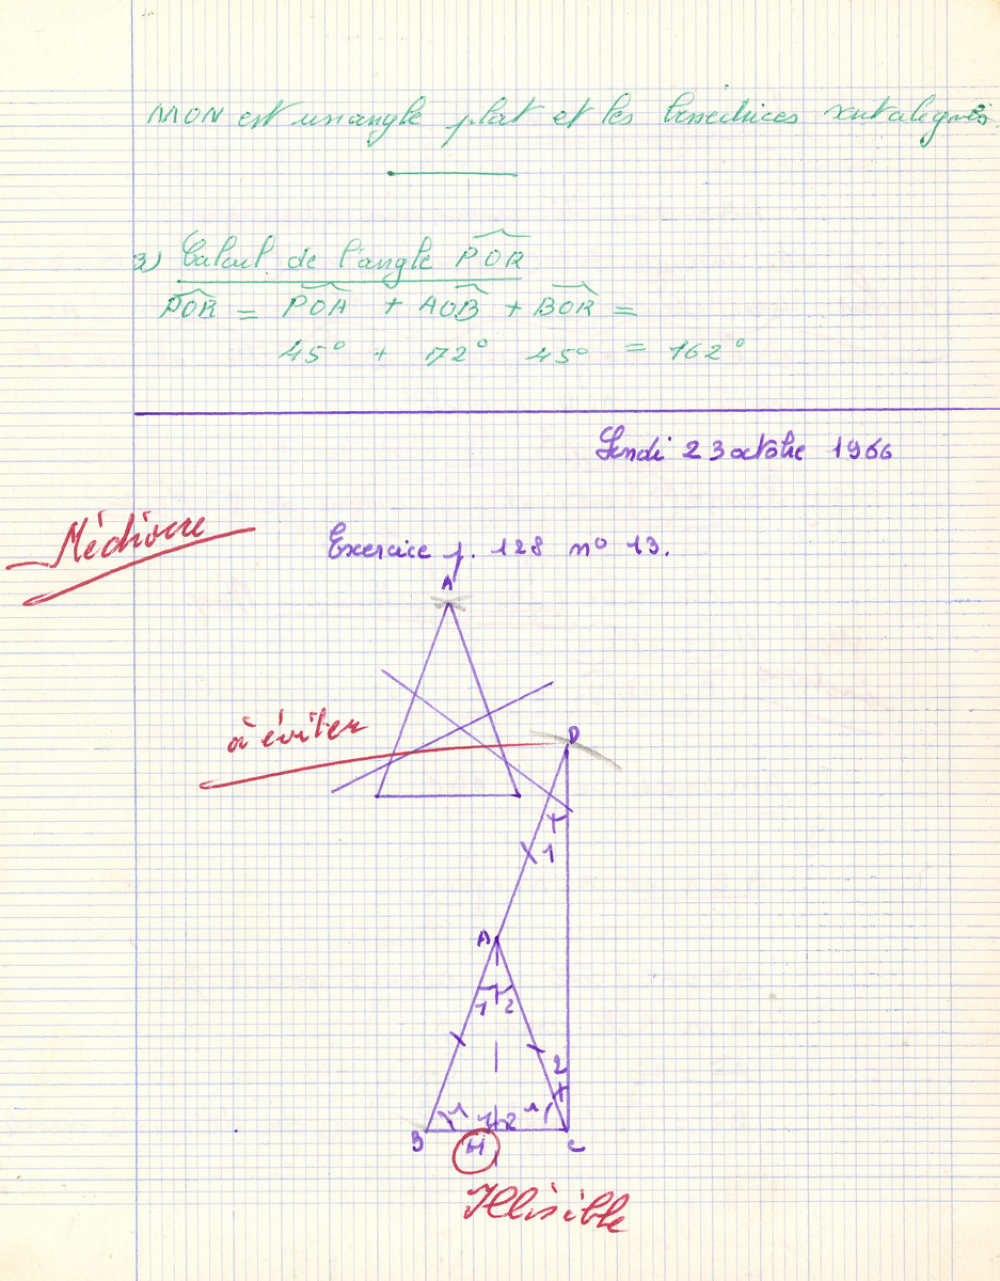 MON est un angle plat et les bissectrices sont alignés
3) Calcul de l'angle POR
POR = POA + AOB + BOR =
45° + 72° 45° = 162°
Lundi 23 octobre 1966
Médiocre
Exercice p. 128 n° 13.
A
à éviter
D
1
A
1 2
2
1 1 2 1
B H C
Illisible